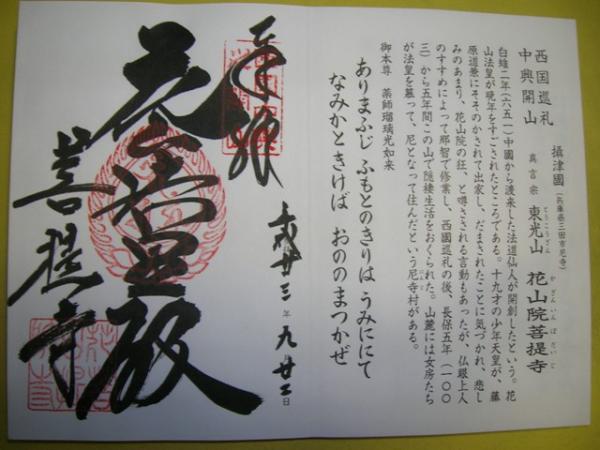 西国巡礼
中興開山
攝津國（兵庫県三田市尼寺）
真言宗 東光山 花山院菩提寺
とうこうざん
かざんいんぼだいじ
白雉二年（六五一）中國から渡来した法道仙人が開創したという。花
山法皇が晩年をすごされたところである。十九才の少年天皇が、藤
原道兼にそそのかされて出家し、だまされたことに気づかれ、悲し
みのあまり、花山院の狂、と噂さされる言動もあったが、仏眼上人
のすすめによって那智で修業し、西國巡礼の後、長保五年（一〇〇
三）から五年間この山で隠棲生活をおくられた。山麓には女房たち
が法皇を慕って、尼となって住んだという尼寺村がある。
御本尊 薬師瑠璃光如来
ありまふじ ふもとのきりは うみににて
なみかときけば おののまつかぜ
奉拝
廿三年 九 廿二日
花山法皇殿
菩提寺